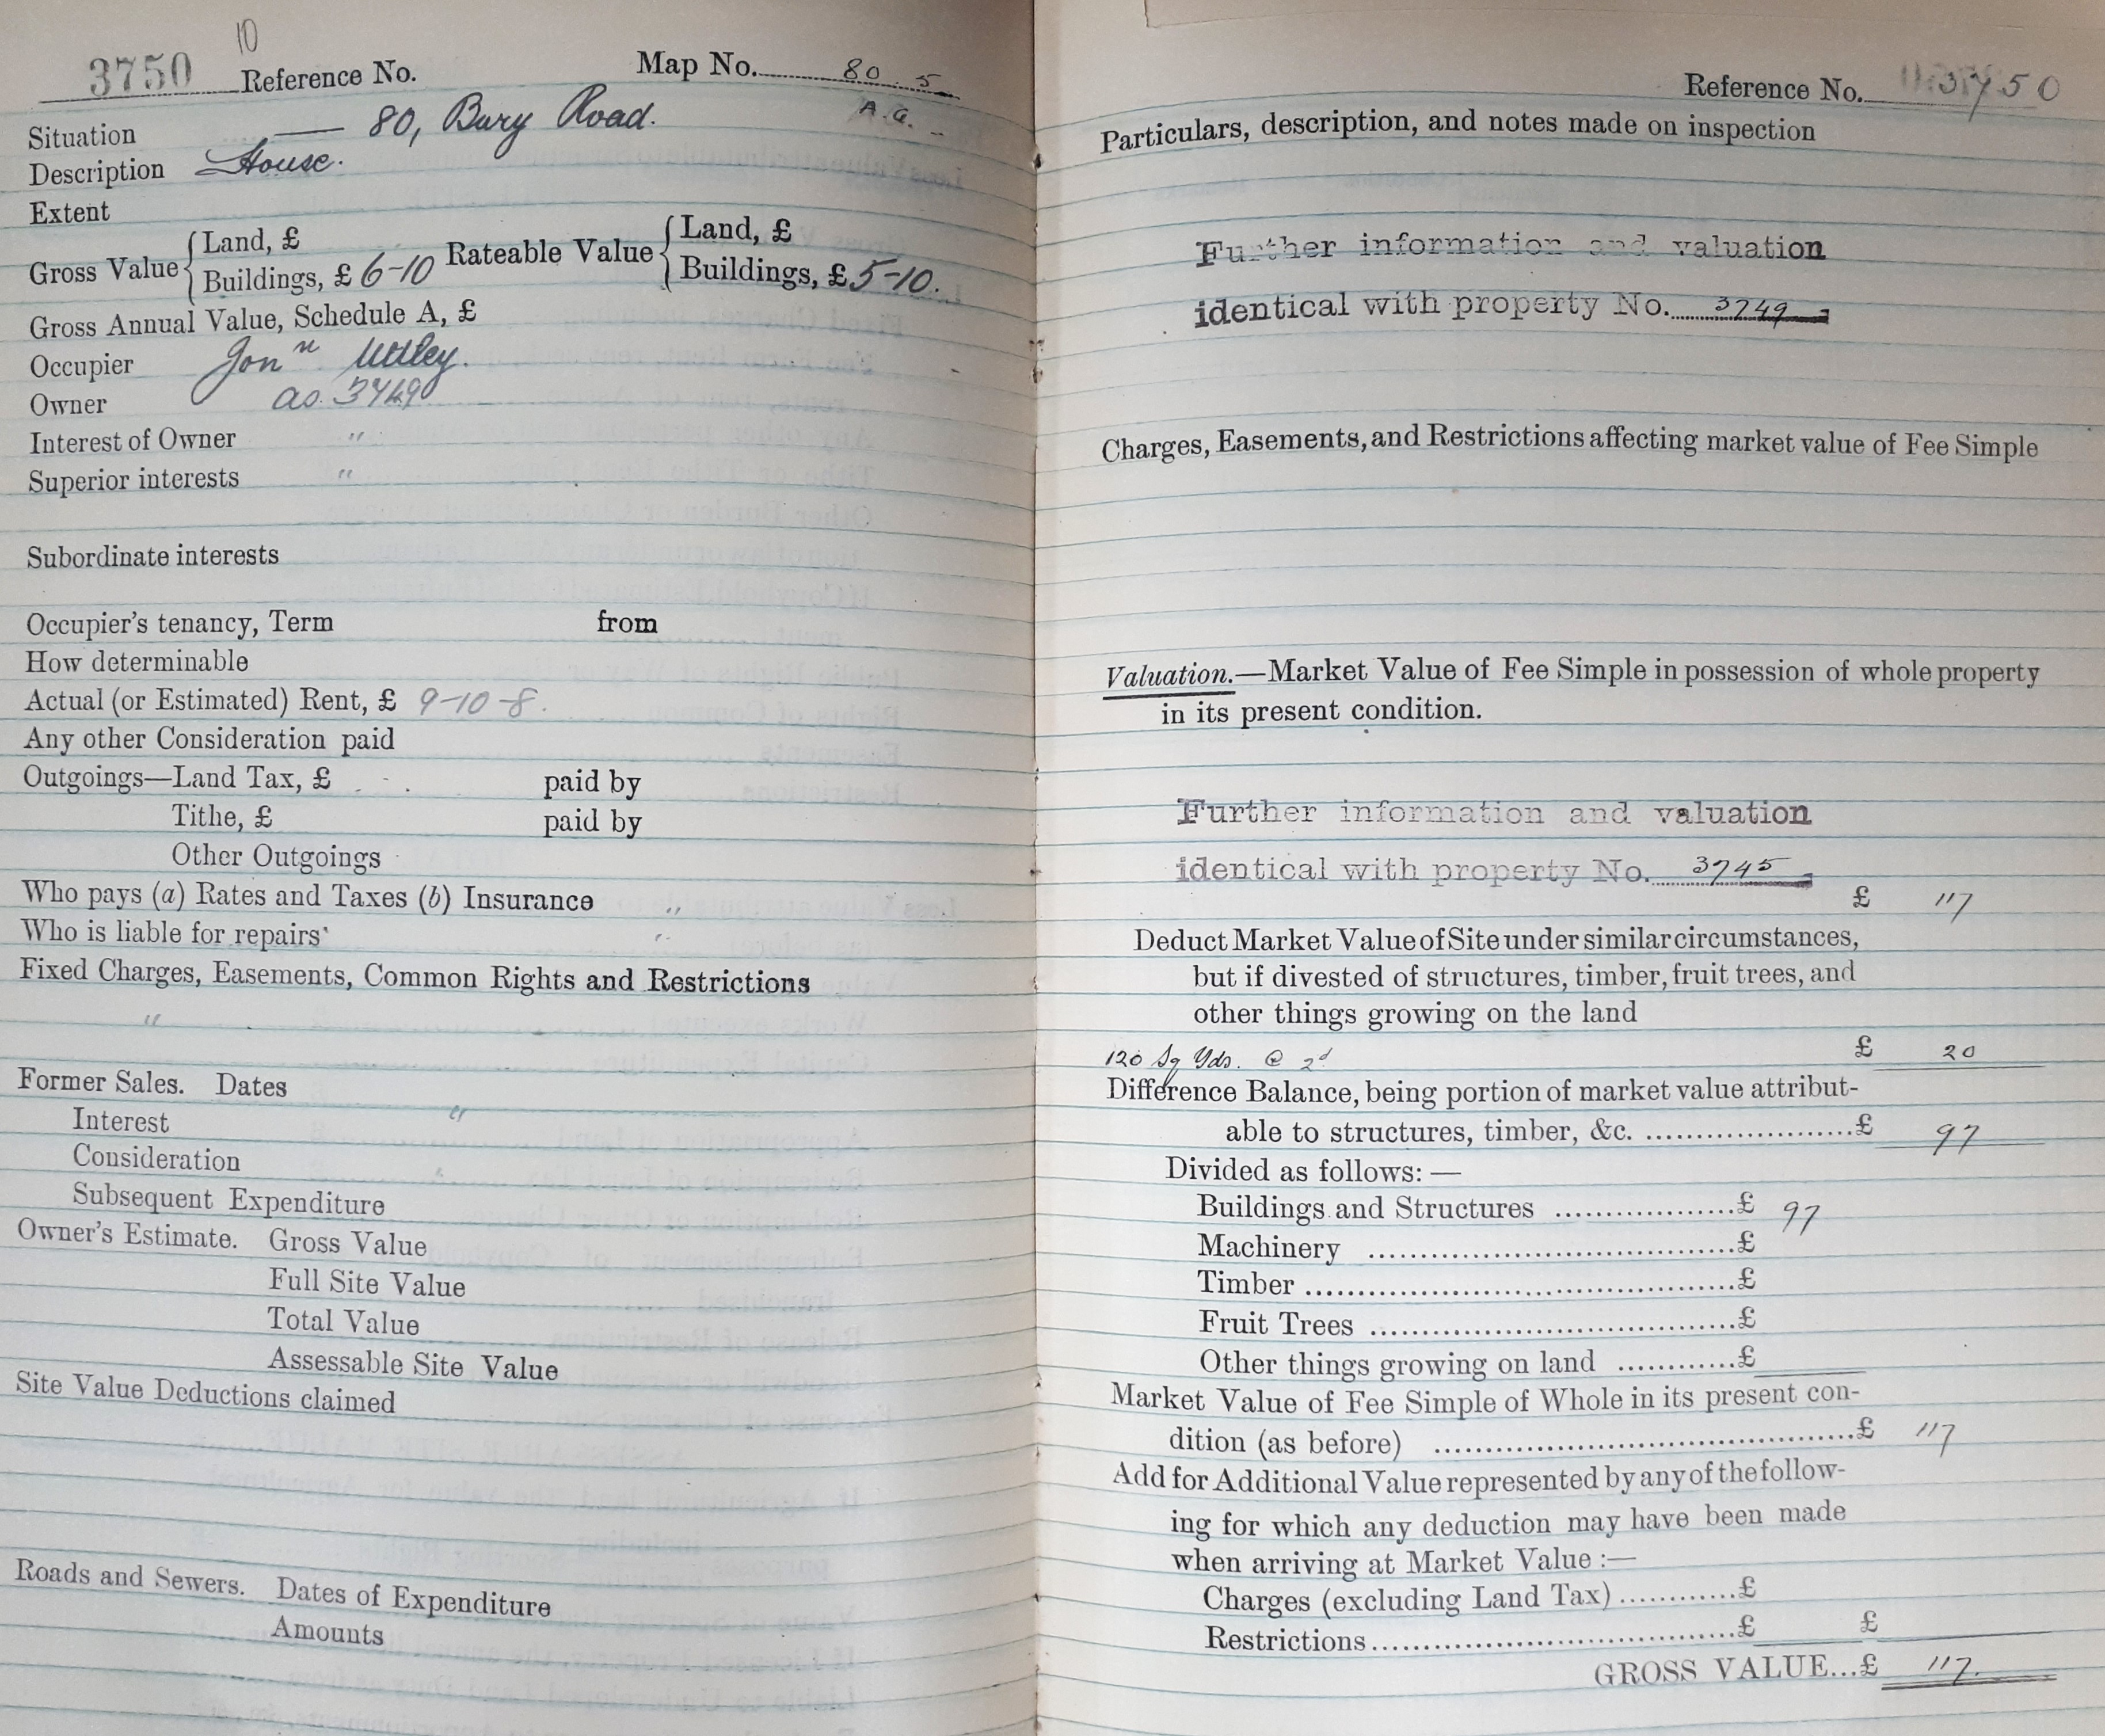 10
3750 Reference No. Map No. 80.5
A.G.
Situation — 80, Bury Road.
Description House.
Extent
Gross Value { Land, £ Rateable Value { Land, £
Buildings, £ 6-10 Buildings, £ 5-10.
Gross Annual Value, Schedule A, £
Occupier Jonn Uttley.
Owner as 3749
Interest of Owner "
Superior interests "
Subordinate interests
Occupier's tenancy, Term from
How determinable
Actual (or Estimated) Rent, £ 9-10-8.
Any other Consideration paid
Outgoings—Land Tax, £ paid by
Tithe, £ paid by
Other Outgoings
Who pays (a) Rates and Taxes (b) Insurance "
Who is liable for repairs "
Fixed Charges, Easements, Common Rights and Restrictions
"
Former Sales. Dates
Interest "
Consideration
Subsequent Expenditure
Owner's Estimate. Gross Value
Full Site Value
Total Value
Assessable Site Value
Site Value Deductions claimed
Roads and Sewers. Dates of Expenditure
Amounts
Reference No. 3750
Particulars, description, and notes made on inspection
Further information and valuation
identical with property No. 3749
Charges, Easements, and Restrictions affecting market value of Fee Simple
Valuation.—Market Value of Fee Simple in possession of whole property
in its present condition.
Further information and valuation
identical with property No. 3745
£ 117
Deduct Market Value of Site under similar circumstances,
but if divested of structures, timber, fruit trees, and
other things growing on the land
120 Sq Yds. @ 2d £ 20
Difference Balance, being portion of market value attribut-
able to structures, timber, &c. ......................£ 97
Divided as follows:—
Buildings and Structures ..................£ 97
Machinery ......................................£
Timber ............................................£
Fruit Trees ......................................£
Other things growing on land ............£
Market Value of Fee Simple of Whole in its present con-
dition (as before) ............................................£ 117
Add for Additional Value represented by any of the follow-
ing for which any deduction may have been made
when arriving at Market Value :—
Charges (excluding Land Tax) ............£
Restrictions.....................................£ £
GROSS VALUE...£ 117.